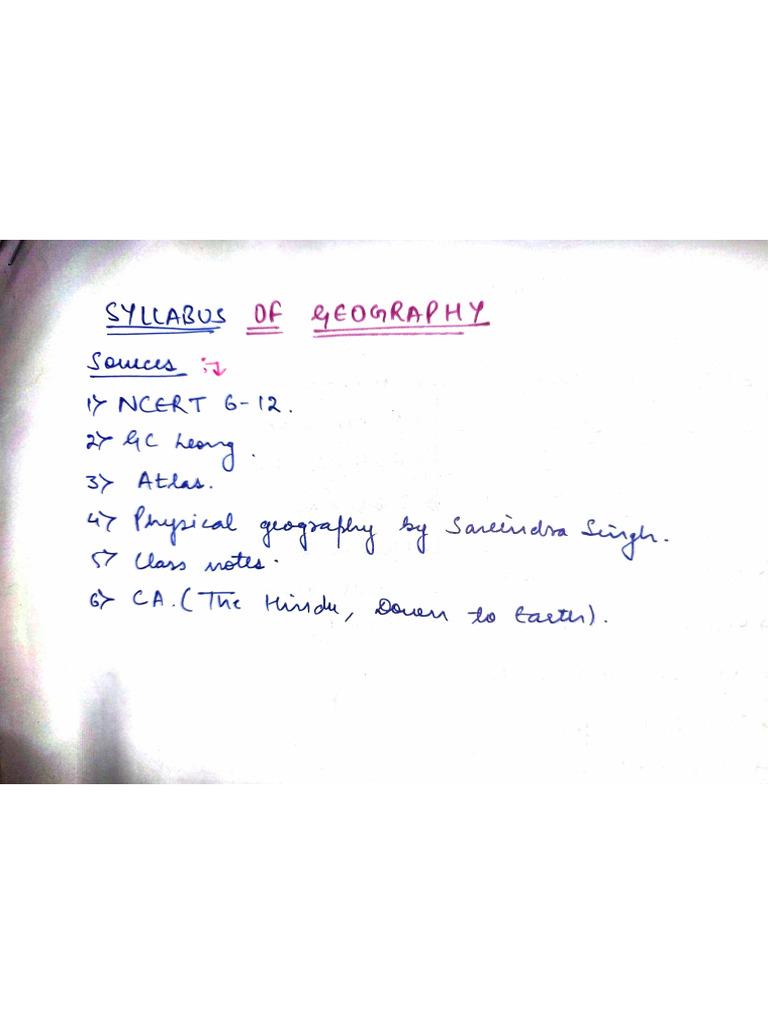 SYLLABUS OF GEOGRAPHY
Sources :→
1) NCERT 6-12.
2) GC Leong.
3) Atlas.
4) Physical geography by Saveindra Singh.
5) Class notes.
6) CA. (The Hindu, Down to Earth).